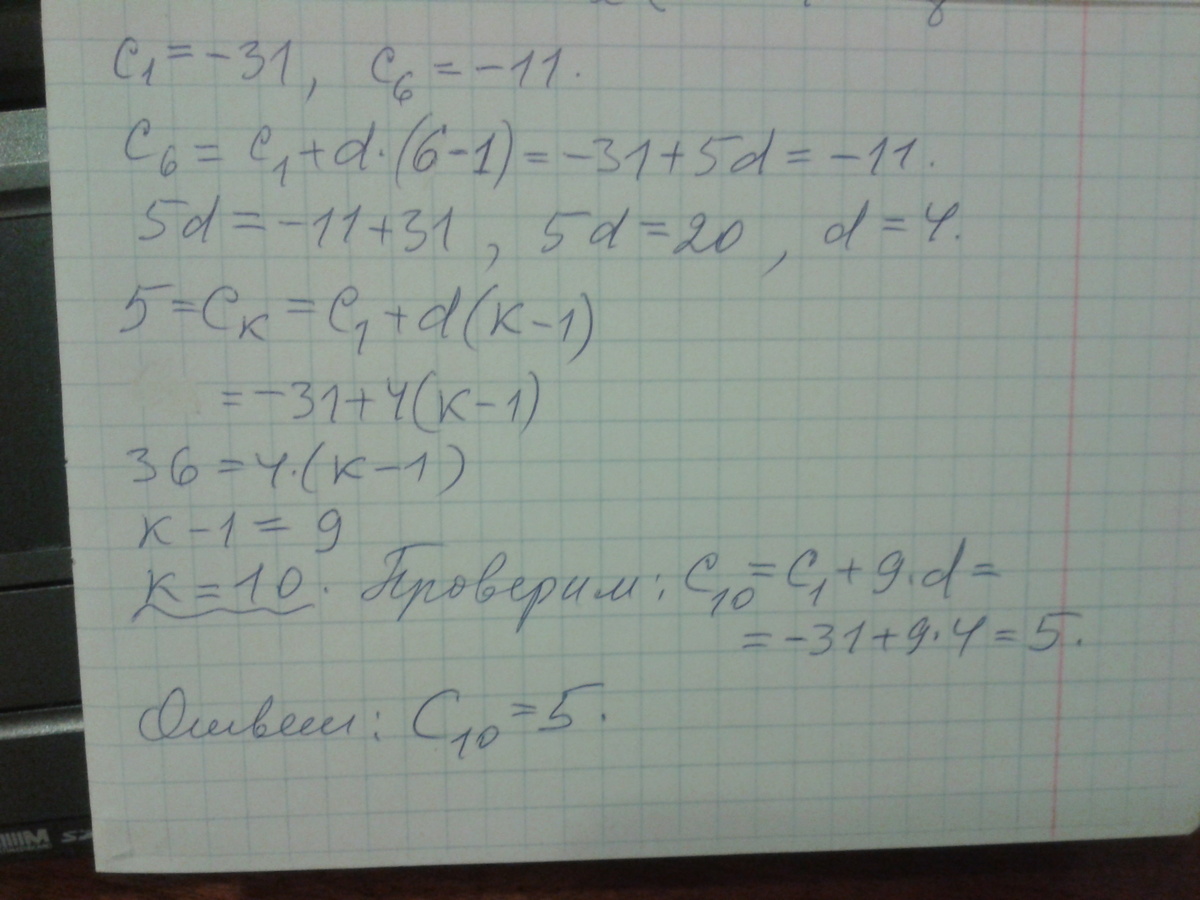 c₁ = -31, c₆ = -11.
c₆ = c₁ + d·(6-1) = -31 + 5d = -11.
5d = -11 + 31, 5d = 20, d = 4.
5 = cₖ = c₁ + d(k-1)
= -31 + 4(k-1)
36 = 4·(k-1)
k - 1 = 9
k = 10. Проверим: c₁₀ = c₁ + 9·d =
= -31 + 9·4 = 5.
Ответ: c₁₀ = 5.